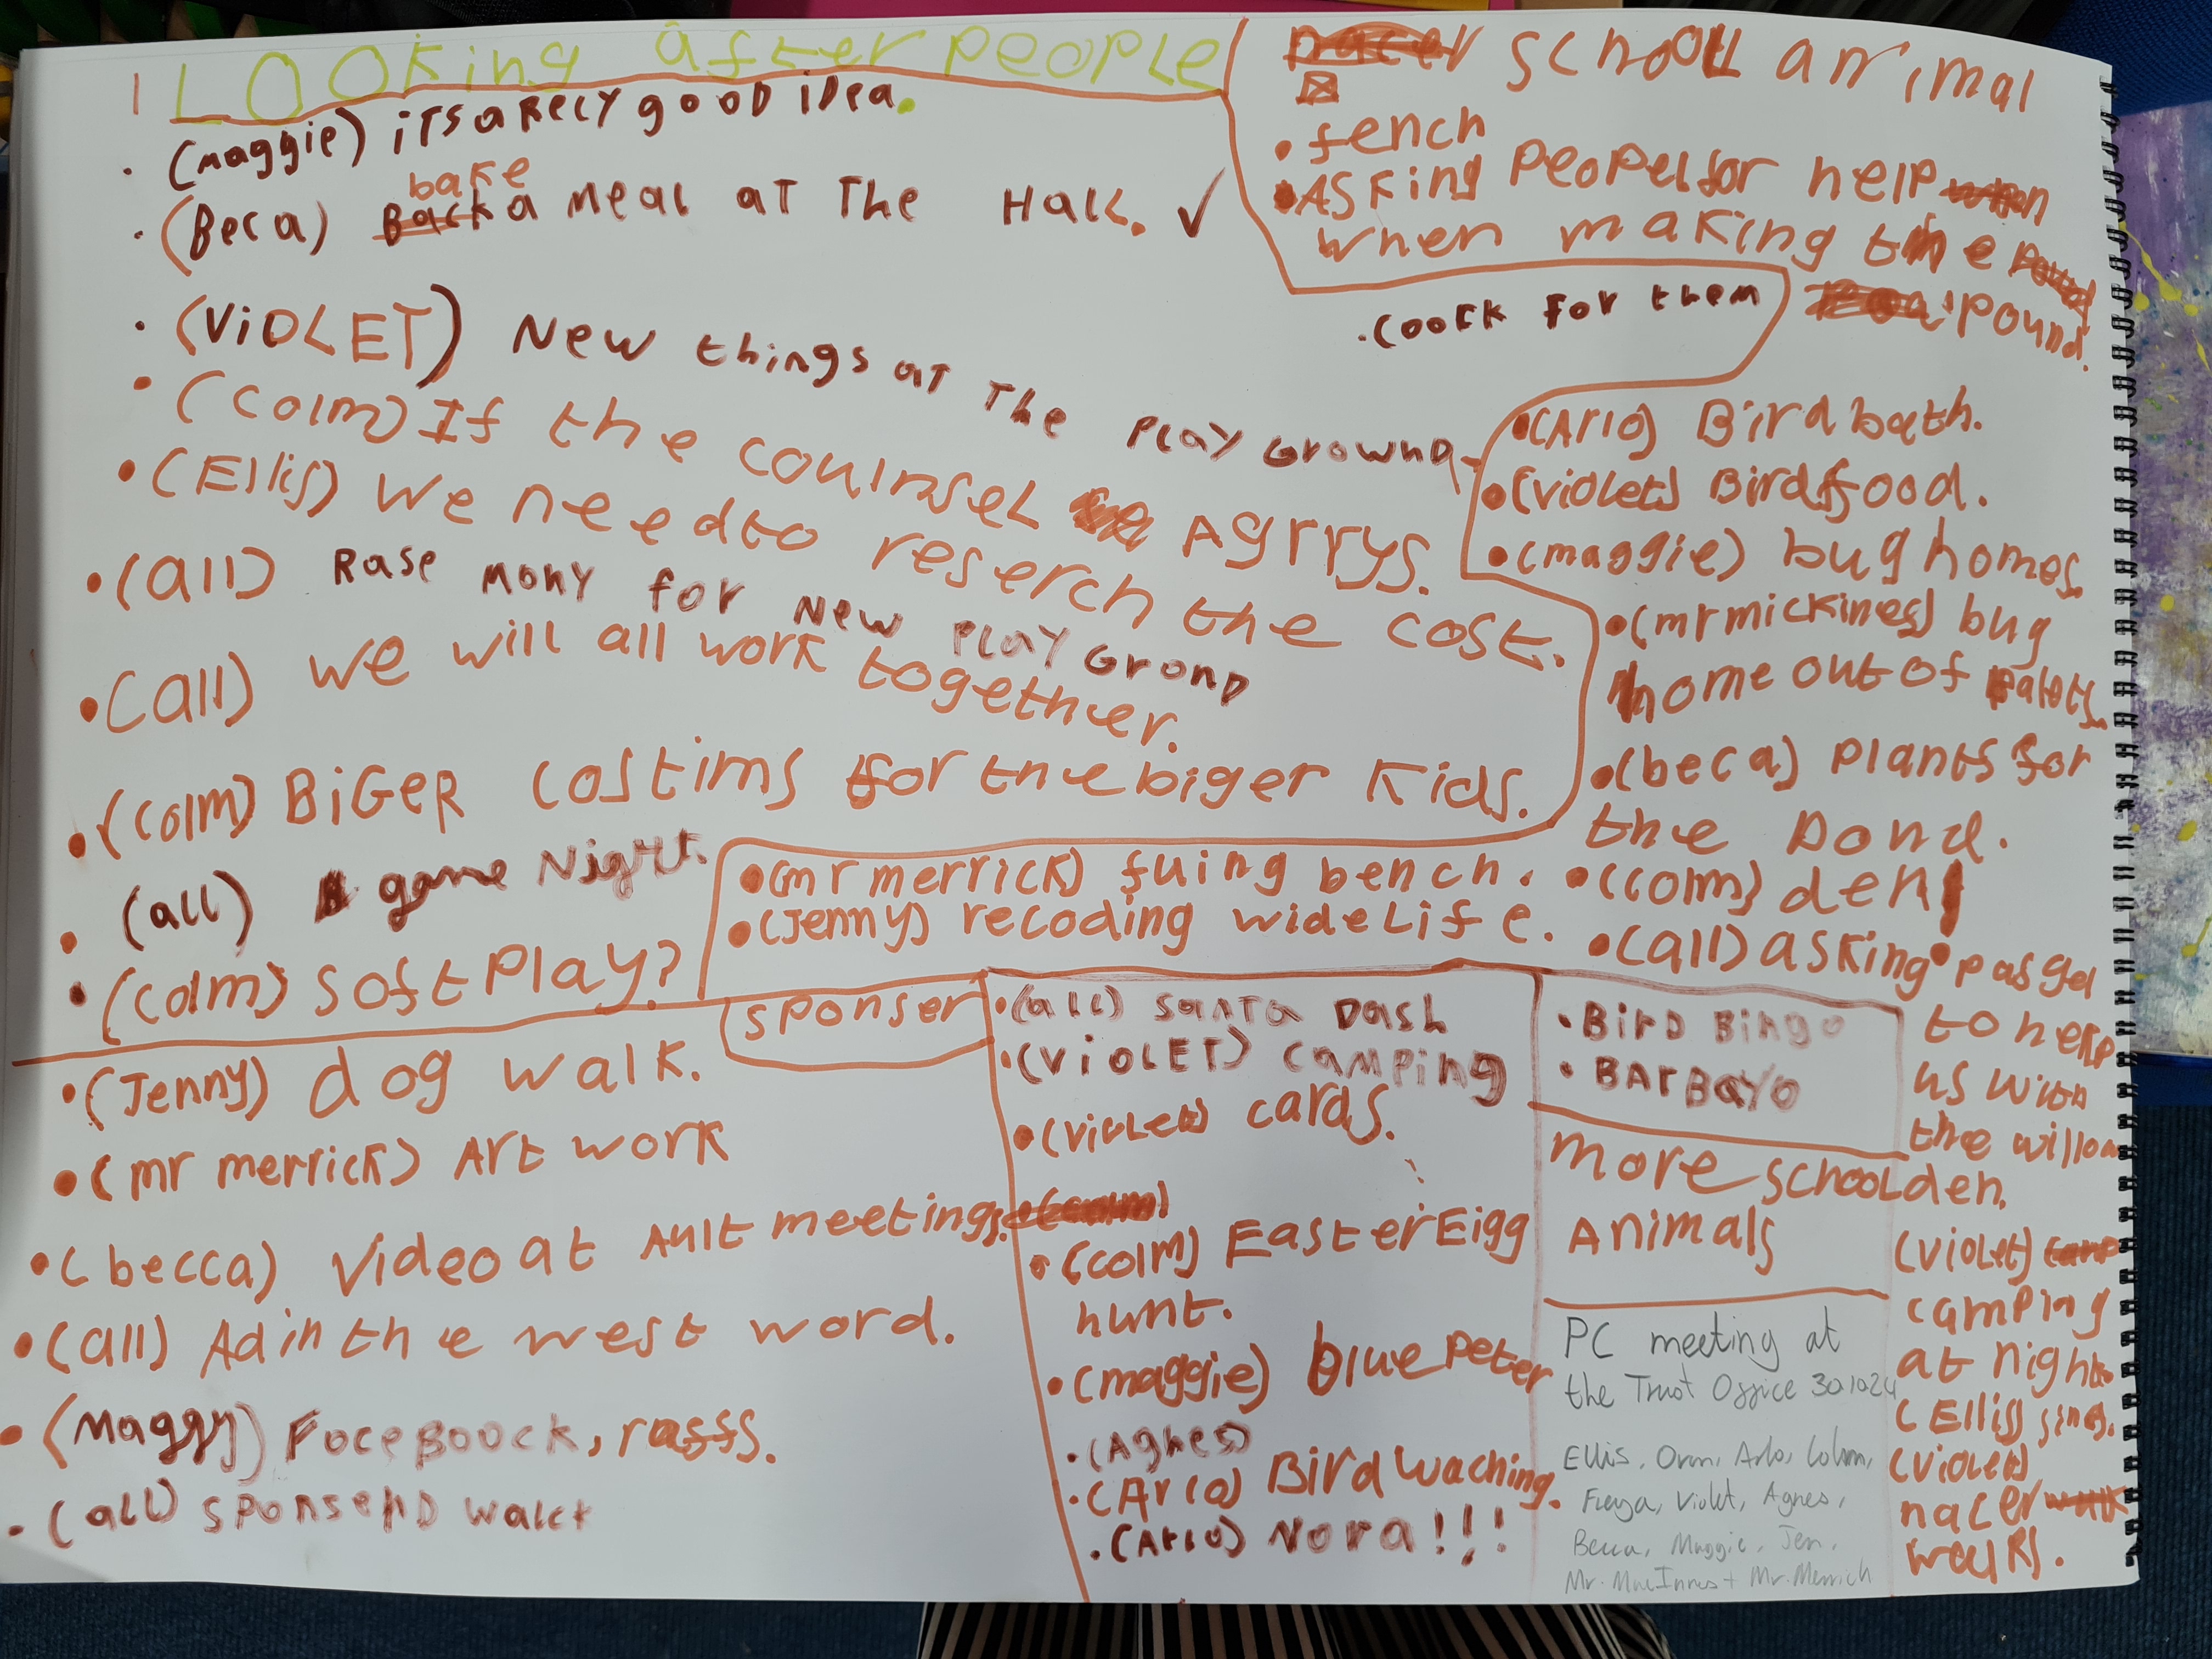 Looking after people
• (maggie) itsarely good idea.
bake
• (Beca) Back a meal at The Hall. ✓
• (VIOLET) New things at The PLAY Grownd
• (colm) If the counsel Agrrys.
• (Ellis) we need to reserch the cost.
• (all) Rase mony for New PLAY Grond
• (all) we will all work together.
• (colm) BiGer costims for the biger Kids.
• (all) game Night.
• (colm) soft Play?
• coock for them
school animal
• fench
• Asking Peopel for help
when making the
pound.
• (Arlo) Bird bath.
• (violet) Bird food.
• (maggie) bug homes.
• (mr mickines) bug
home out of palets.
• (beca) plants for
the Pond.
• (colm) den
• (all) asking
to help
us with
the willow
den.
(violet)
camping
at night.
(Ellis) sines.
(violet)
nacer
walks.
• (mr merrick) fuing bench.
• (Jenny) recoding wide Life.
sponser
• (Jenny) dog walk.
• (mr merrick) Art work
• (becca) Video at Ault meetings.
• (all) Ad in the west word.
• (Maggy) FaceBoock, raffs.
• (all) sponserd walck
• (all) Santa Dash
• (VIOLET) camping
• (violet) cards.
• (colm) Easter Eigg
hunt.
• (maggie) blue Peter
• (Agnes)
• (Arlo) Bird waching.
• (Arlo) Nora!!!
• Bird Bingo
• BArBAyo
more school
Animals
PC meeting at
the Trust Office 30.10.24
Ellis, Oran, Arlo, Colm,
Freya, Violet, Agnes,
Becca, Maggie, Jen,
Mr. MacInnes + Mr. Merrick